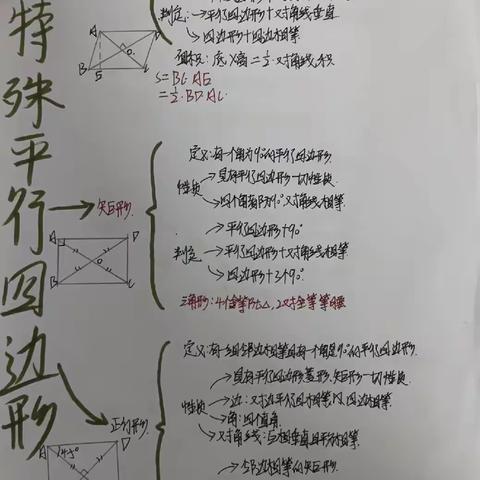 特殊平行四边形
判定:→平行四边形+对角线垂直
四边形+四边相等
面积:底×高=½对角线积
S=BC·AE
=½·BD·AC
A
B
E
C
D
O
矩形
定义:有一个角为90°的平行四边形
性质
具有平行四边形一切性质
四个角都为90°对角线相等
判定
平行四边形+90°
平行四边形+对角线相等
四边形+3个90°
三角形:4个全等Rt△,2对全等等腰
A
D
B
C
正方形
定义:有一组邻边相等且有一个角是90°的平行四边形
性质
具有平行四边形菱形,矩形一切性质
边:对边平行四边相等,四边相等
角:四个直角
对角线:互相垂直且平分相等
邻边相等的矩形
A
D
45°